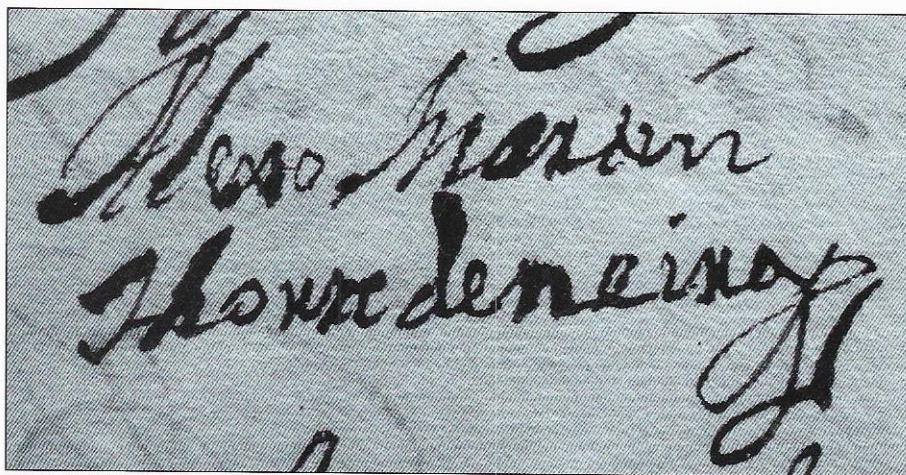 Alexo Martín
Thorre deneira